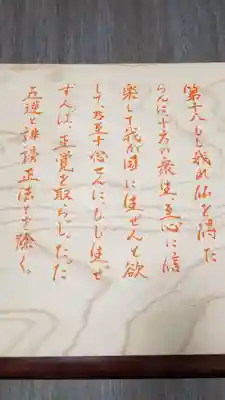 第十八 もし我れ仏を得た
らんに十方の衆生、至心に信
楽して我が国に生ぜんと欲
して、乃至十念せんにもし生ぜ
ず人ば、正覚を取らじ。たゞ
五逆と誹謗正法とを除く。